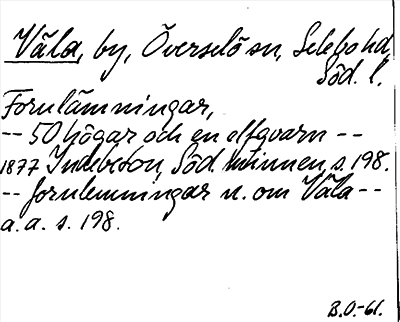 Väla, by, Överselö sn, Selebo hd,
Söd. l.
Fornlämningar,
-- 50 högar och en elfqvarn --
1877 Indebetou, Söd. minnen, s. 198.
-- fornlemningar n. om Väla --
a. a. s. 198.
B.O.-61.